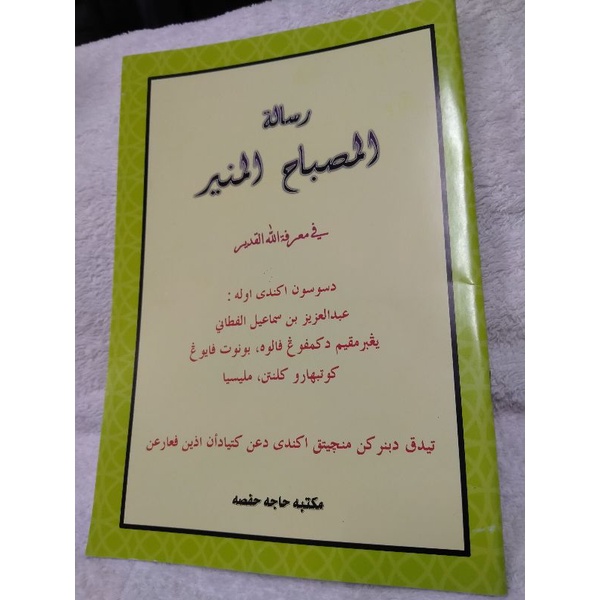 رسالة
المصباح المنير
في معرفة الله القدير
دسوسون اكندى اوله :
عبدالعزيز بن سماعيل الفطاني
يڠبرمقيم دكمفوڠ ڤالوه، بونوت ڤايوڠ
كوتبهارو كلنتن، مليسيا
تيدق دبنركن منچيتق اكندى دڠن كتيادأن اذين ڤڠارڠن
مكتبه حاجه حفصه